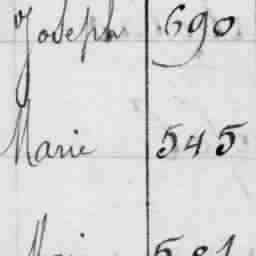 Joseph 690
Marie 545